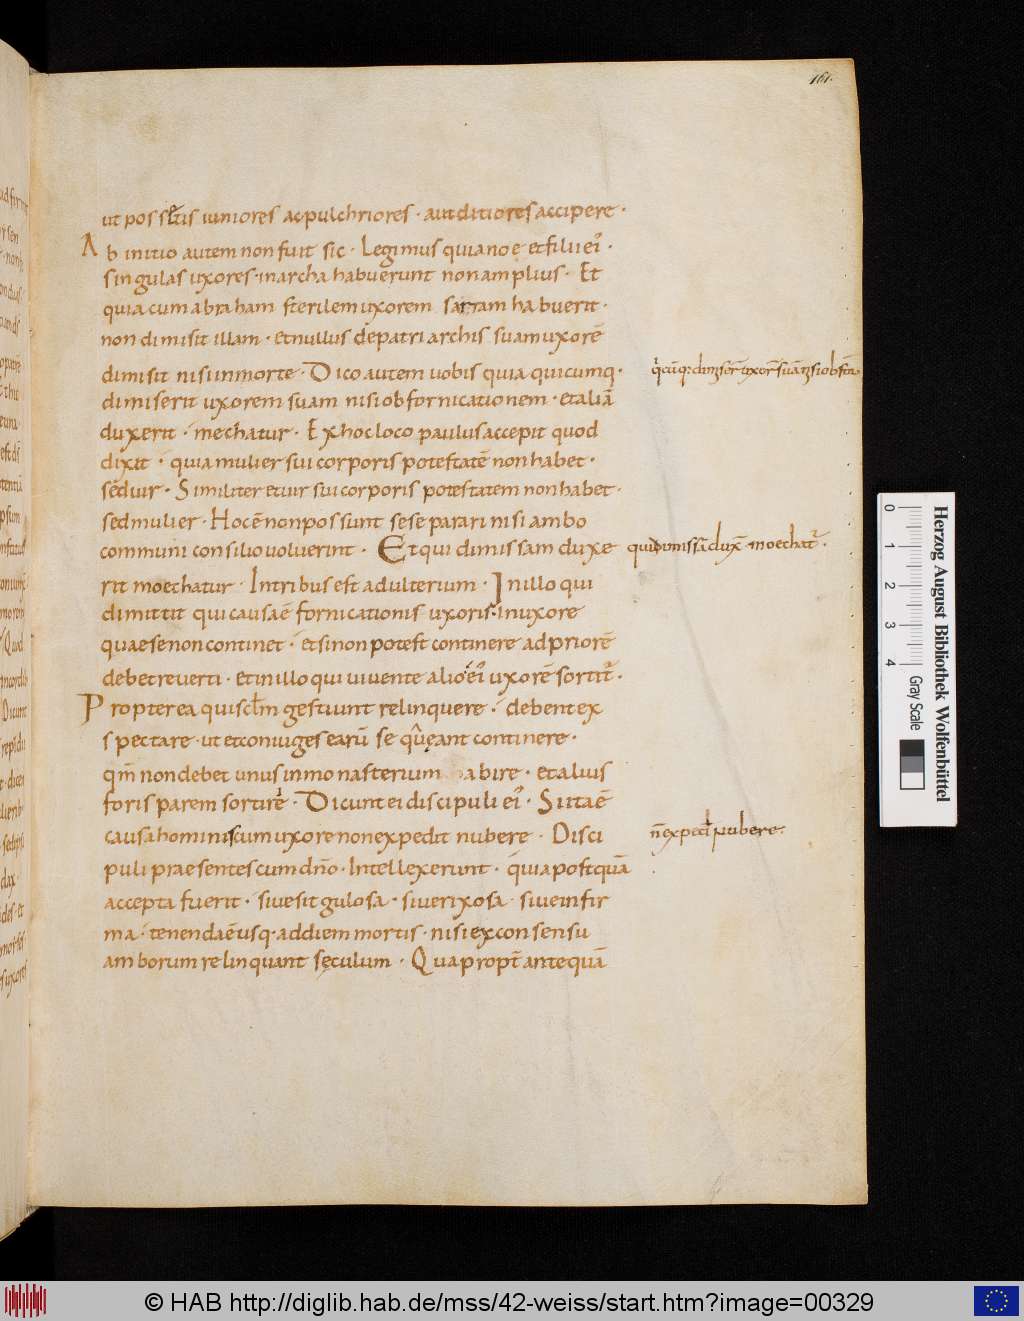 161.
ut possetis iuniores ac pulchriores · aut ditiores accipere ·
Ab initio autem non fuit sic · Legimus quia noe et filii ei᾽ ·
singulas uxores · in archa habuerunt non amplius · Et
quia cum abraham sterilem uxorem sarram habuerit ·
non dimisit illam · et nullus de patriarchis suam uxorē
dimisit nisi in morte · Dico autem uobis quia quicumq·
dimiserit uxorem suam nisi ob fornicationem · et aliā
duxerit · mechatur · Ex hoc loco paulus accepit quod
dixit · quia mulier sui corporis potestatē non habet ·
sed uir · Similiter et uir sui corporis potestatem non habet ·
sed mulier · Hoc ē non possunt se separari nisi ambo
communi consilio uoluerint · Et qui dimissam duxe
quidimissā dux̄ moechat᾽ ·
rit moechatur · In tribus est adulterium · In illo qui
dimittit qui causa ē fornicationis uxoris · in uxore
quae se non continet · et si non potest continere ad priorē
debet reuerti · et in illo qui uiuente alio ei᾽ uxorē sortit᾽ ·
Propterea qui sc̄lm gestiunt relinquere · debent ex
spectare · ut et coniuges earū se queant continere ·
qm̄ non debet unus in monasterium abire · et alius
foris parem sortire · Dicunt ei discipuli ei᾽ · Si ita ē
causa hominis cum uxore non expedit nubere · Disci
n̄ exped̄ nubere ·
puli praesentes cum dn̄o · Intellexerunt · quia postquā
accepta fuerit · siue sit gulosa · siue rixosa · siue infir
ma · tenenda ē usq· ad diem mortis · nisi ex consensu
amborum relinquant sęculum · Qua propt̄ antequā
Herzog August Bibliothek Wolfenbüttel
0 1 2 3 4
Gray Scale
© HAB http://diglib.hab.de/mss/42-weiss/start.htm?image=00329